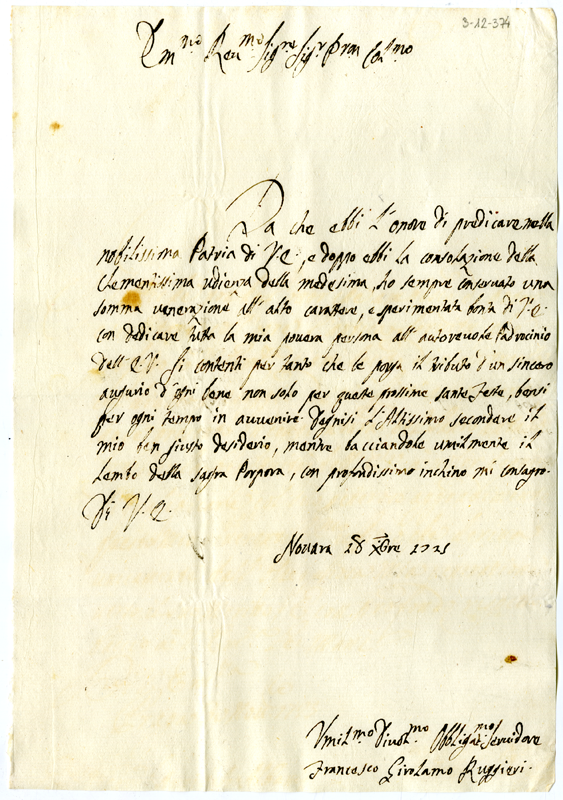 3-12-374
Em.mo Reu.mo Sig.re Sig.r Pron Col.mo
Da che ebbi l'onore di predicare nella
nobilissima Patria di V.E., e doppo ebbi la consolazione della
Clementissima udienza della medesima, ho sempre conseruato una
somma venerazione all'alto carattere, e sperimentata bontà di V.E.
con dedicare tutta la mia pouera persona all'autoreuole Padrocinio
dell'E.V. Si contenti per tanto che le porga il tributo d'un sincero
augurio d'ogni bene non solo per queste prossime sante Feste, bensì
per ogni tempo in auuenire. Degnisi l'Altissimo secondare il
mio ben giusto desiderio, mentre bacciandole umilmente il
lembo della sagra Porpora, con profondissimo inchino mi consagro.
Di V.E.
Nouara 18 Xbre 1721
Vmil.mo Diuot.mo Obbligat.mo Seruidore
Francesco Girolamo Ruggieri.